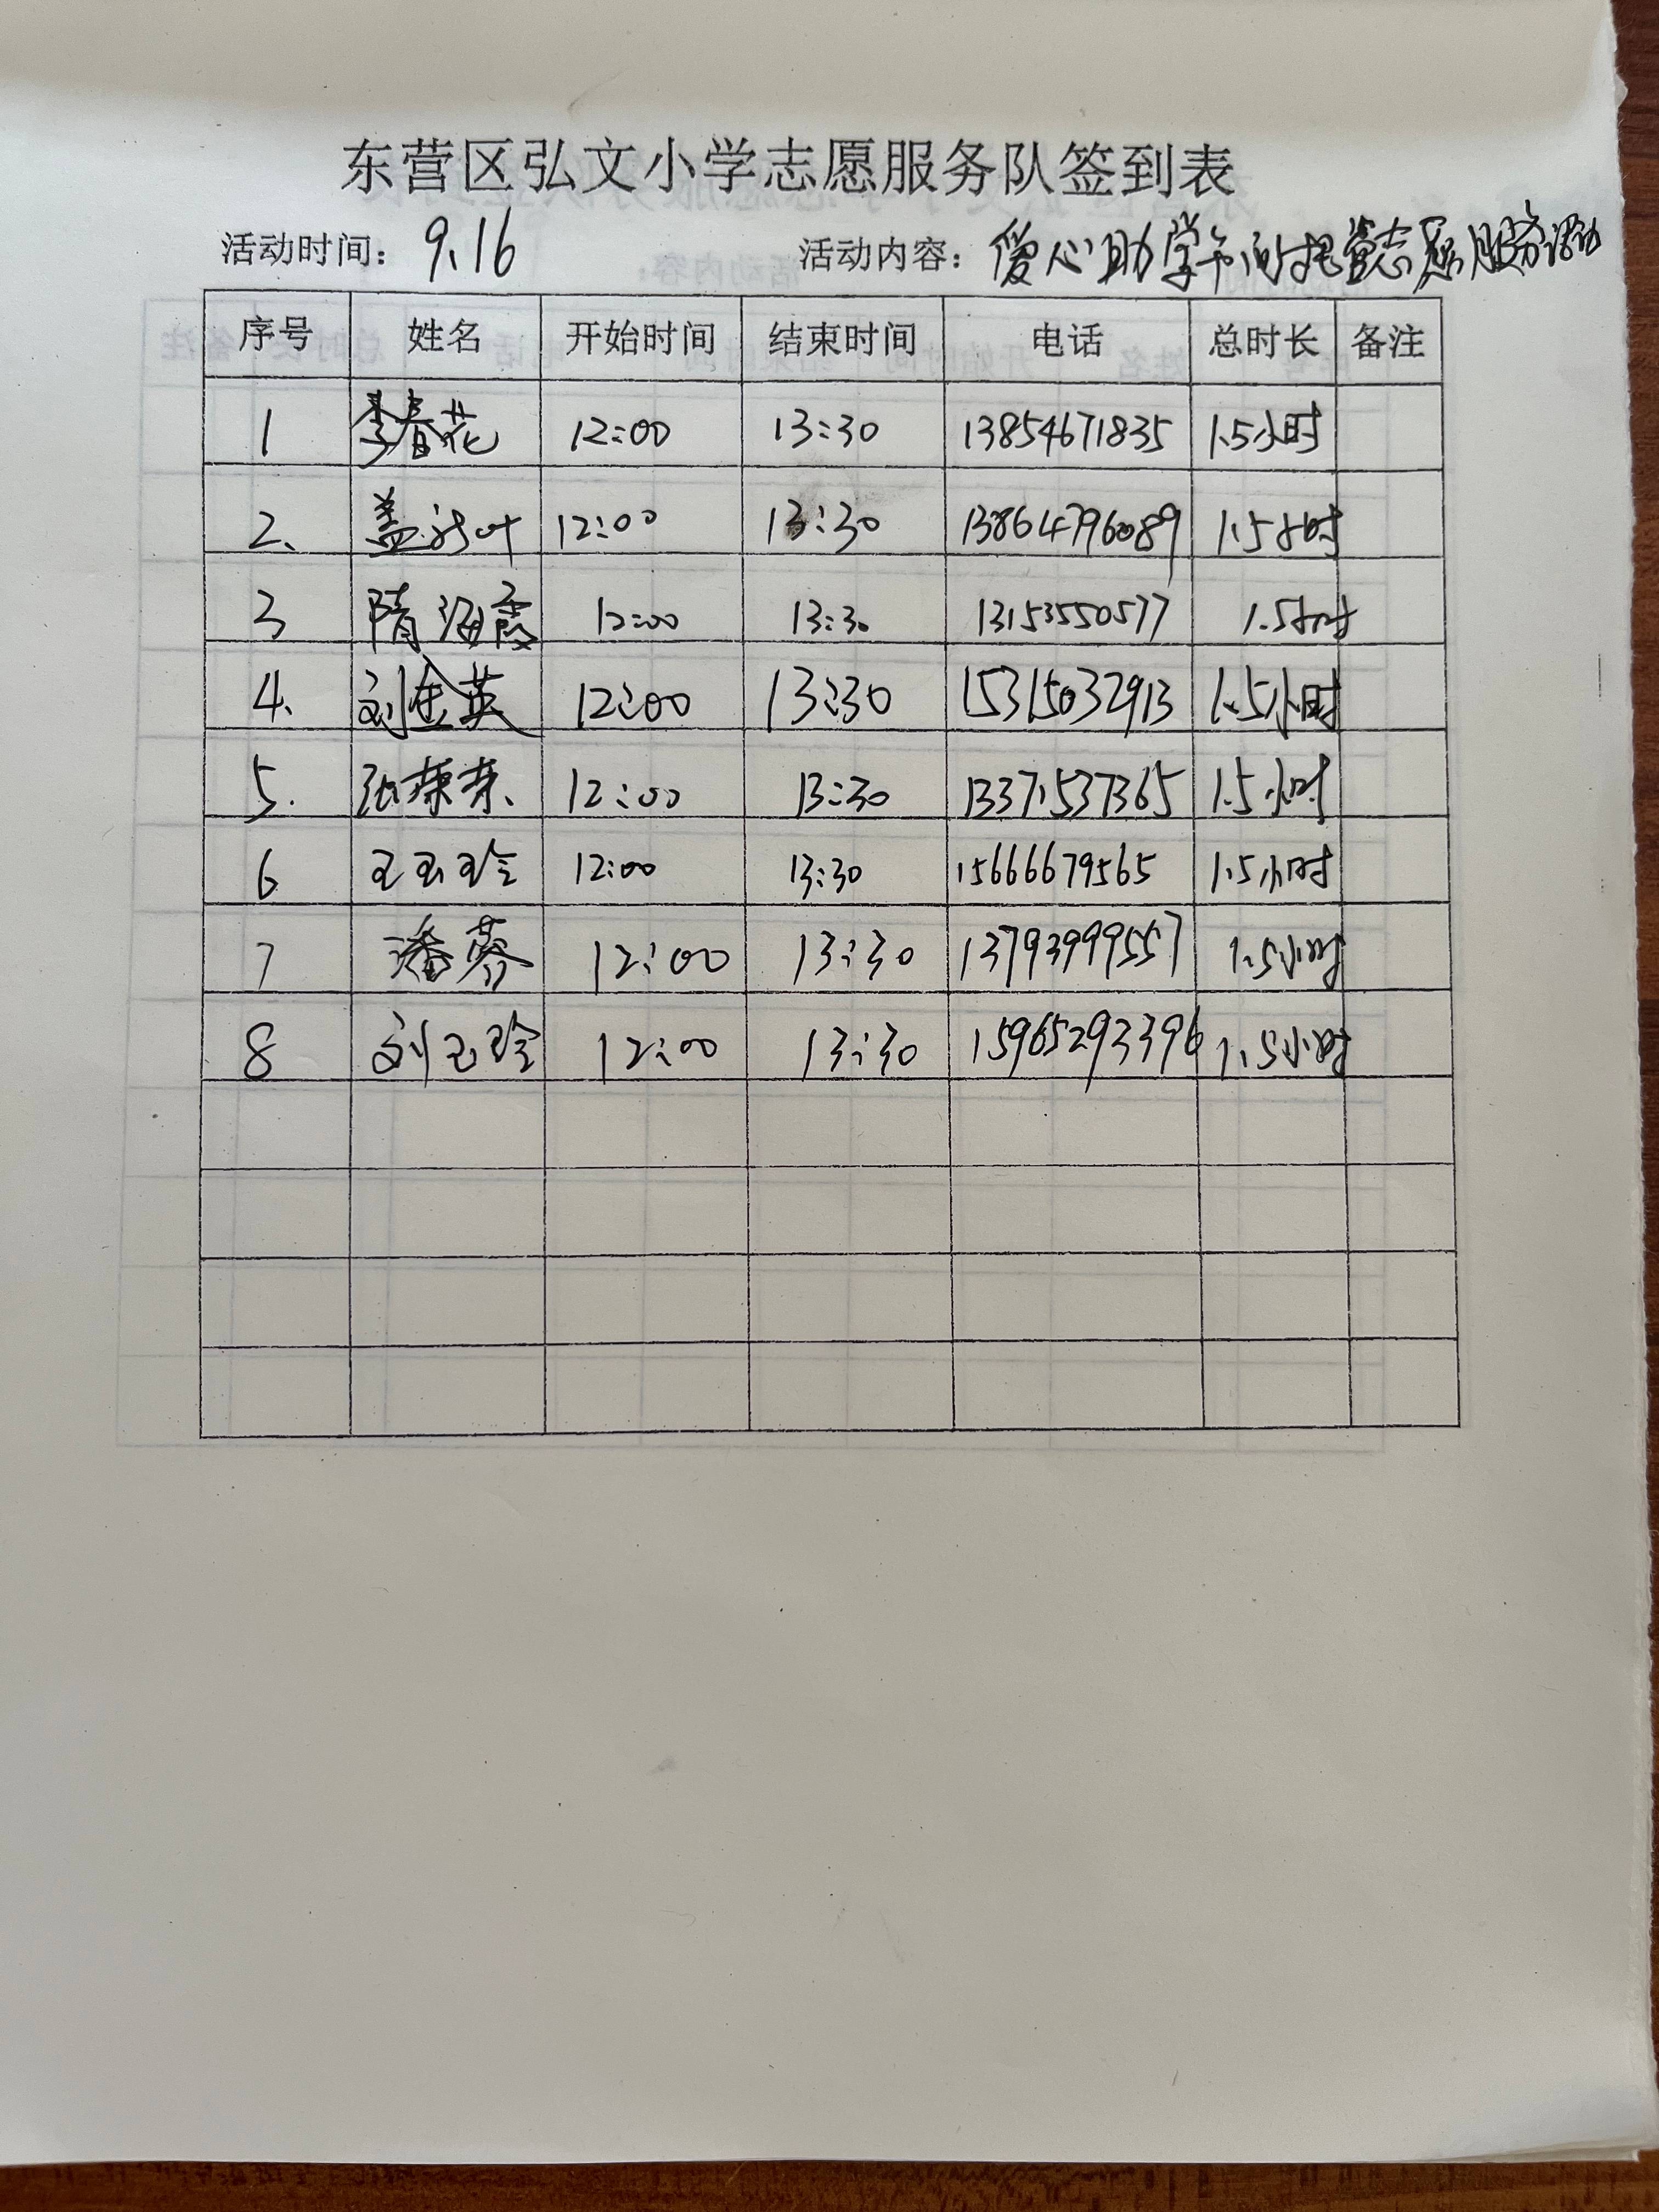 东营区弘文小学志愿服务队签到表
活动时间：9.16 活动内容：爱心助学午间托管志愿服务活动
序号 姓名 开始时间 结束时间 电话 总时长 备注
1 李春花 12:00 13:30 13854671835 1.5小时
2、 盖 叶 12:00 13:30 13864796089 1.5小时
3 隋海霞 12:00 13:30 13153550577 1.5小时
4、 刘金英 12:00 13:30 15315032913 1.5小时
5. 张荣荣、 12:00 13:30 13371537365 1.5小时
6 王玉玲 12:00 13:30 15666679565 1.5小时
7 潘蓉 12:00 13:30 13793999557 1.5小时
8 刘玉玲 12:00 13:30 15965293396 1.5小时